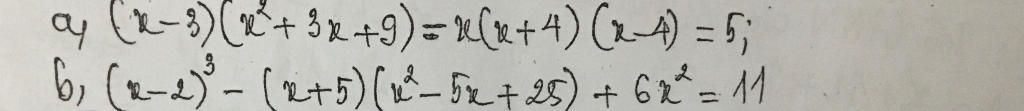 a, (x-3)(x²+3x+9)=x(x+4)(x-4)=5;
b, (x-2)³-(x+5)(x²-5x+25)+6x²=11